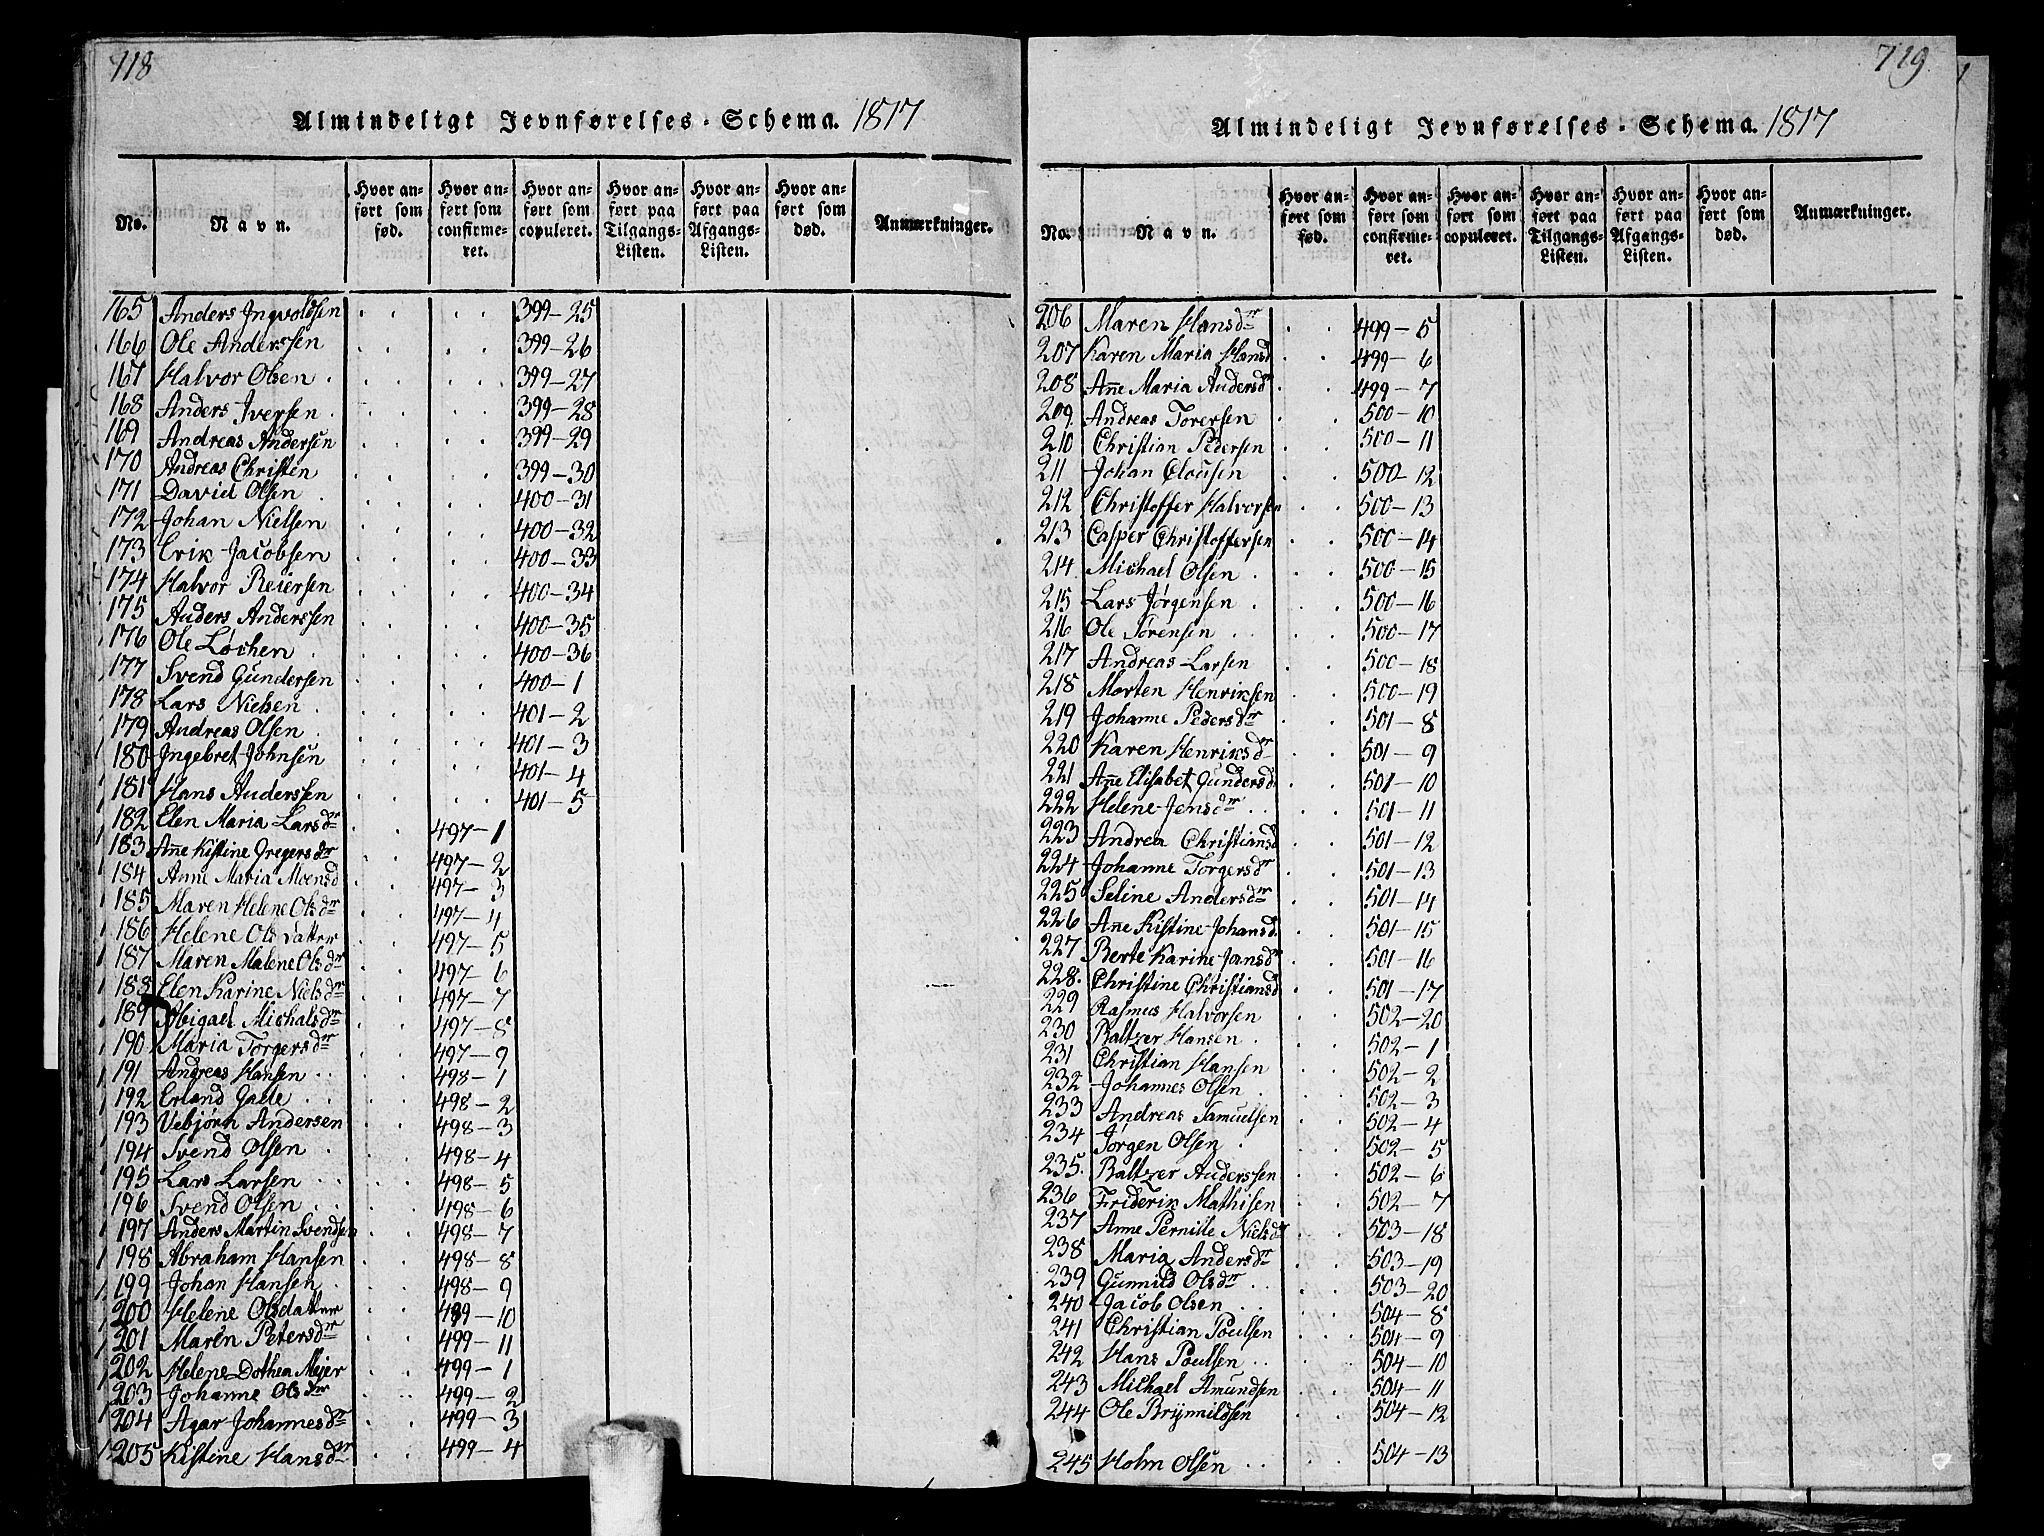 718
Almindeligt Jevnførelses-Schema. 1817
No. Navn. Hvor anført som fød. Hvor anført som confirmeret. Hvor anført som copuleret. Hvor anført paa Tilgangs-Listen. Hvor anført paa Afgangs-Listen. Hvor anført som død. Anmærkninger.
165 Anders Ingvoldsen . . . . 399-25
166 Ole Anderssen . . . . 399-26
167 Halvor Olsen . . . . . 399-27
168 Anders Iversen . . . . . 399-28
169 Andreas Andersen . . . . 399-29
170 Andreas Christen . . . . 399-30
171 David Olsen . . . . . 400-31
172 Johan Nielsen . . . . 400-32
173 Erik Jacobsen . . . . 400-33
174 Halvor Reiersen . . . . 400-34
175 Anders Anderssen . . . . 400-35
176 Ole Løchen . . . . . 400-36
177 Svend Gundersen . . . . 400-1
178 Lars Nielsen . . . . . 401-2
179 Andreas Olsen . . . . . 401-3
180 Ingebret Johnsen . . . . 401-4
181 Hans Anderssen . . . . 401-5
182 Elen Maria Larsdr . . 497-1
183 Añe Kistine Gregersdr . . 497-2
184 Anne Maria Moensd . . 497-3
185 Maren Helene Olsdr . . 497-4
186 Helene Olsdatter . . 497-5
187 Maren Malene Olsdr . . 497-6
188 Elen Karine Nielsdr . . 497-7
189 Abigael Michalsdr . . 497-8
190 Maria Torgersdr . . 497-9
191 Andreas Hansen . . . . 498-1
192 Erland Gade . . . . 498-2
193 Vebjørn Andersen . . 498-3
194 Svend Olsen . . . 498-4
195 Lars Larsen . . . . 498-5
196 Svend Olsen . . . . 498-6
197 Anders Martin Svendsen . . 498-7
198 Abraham Hansen . . 498-8
199 Johan Hansen . . . 498-9
200 Helene Olsdatter . . 499-10
201 Maren Petersdr . . 499-11
202 Helene Dothea Mejer . . 499-1
203 Johanne Olsdr . . 499-2
204 Agar Johannesdr . . 499-3
205 Kistine Hansdr . . 499-4
719
Almindeligt Jevnførelses-Schema. 1817
No. Navn. Hvor anført som fød. Hvor anført som confirmeret. Hvor anført som copuleret. Hvor anført paa Tilgangs-Listen. Hvor anført paa Afgangs-Listen. Hvor anført som død. Anmærkninger.
206 Maren Hansdr . . 499-5
207 Karen Maria Hansd . . 499-6
208 Añe Maria Andersdr . . 499-7
209. Andreas Torersen . . 500-10
210 Christian Pedersen . . 500-11
211 Johan Clousen . . 500-12
212 Christoffer Halvorsen . . 500-13
213 Casper Christoffersen . . 500-14
214 Michael Olsen . . . 500-15
215 Lars Jørgensen . . . 500-16
216 Ole Sørensen . . . . 500-17
217 Andreas Larsen . . 500-18
218 Morten Henriksen . . 500-19
219 Johanne Pedersdr . . 501-8
220 Karen Henriksdr . . 501-9
221 Añe Elisabet Gundersd . . 501-10
222 Helene Jensdr . . . . 501-11
223 Andrea Christiansd . . 501-12
224 Johanne Torgersdr . . 501-13
225 Seline Andersdr . . 501-14
226 Añe Kistine Johansd. . . 501-15
227 Berte Karine Jansdr . . 501-16
228. Christine Christiansd . . 501-17
229 Rasmus Halvorsen . . 502-20
230 Baltzer Hansen . . . 502-1
231 Christian Hansen . . 502-2
232 Johannes Olsen . . . 502-3
233 Andreas Samuelsen . . 502-4
234 Jørgen Olsen . . . 502-5
235. Baltzer Anderssen . . 502-6
236 Friderik Mathisen . . 502-7
237 Anne Pernille Nielsdr . . 503-18
238 Maria Andersdr . . 503-19
239 Gunnild Olsdr . . . . 503-20
240 Jacob Olsen . . . . 504-8
241 Christian Poulsen . . . 504-9
242 Hans Poulsen . . . . 504-10
243 Michael Amundsen . . 504-11
244 Ole Brynnildsen . . 504-12
245 Holm Olsen . . . . 504-13